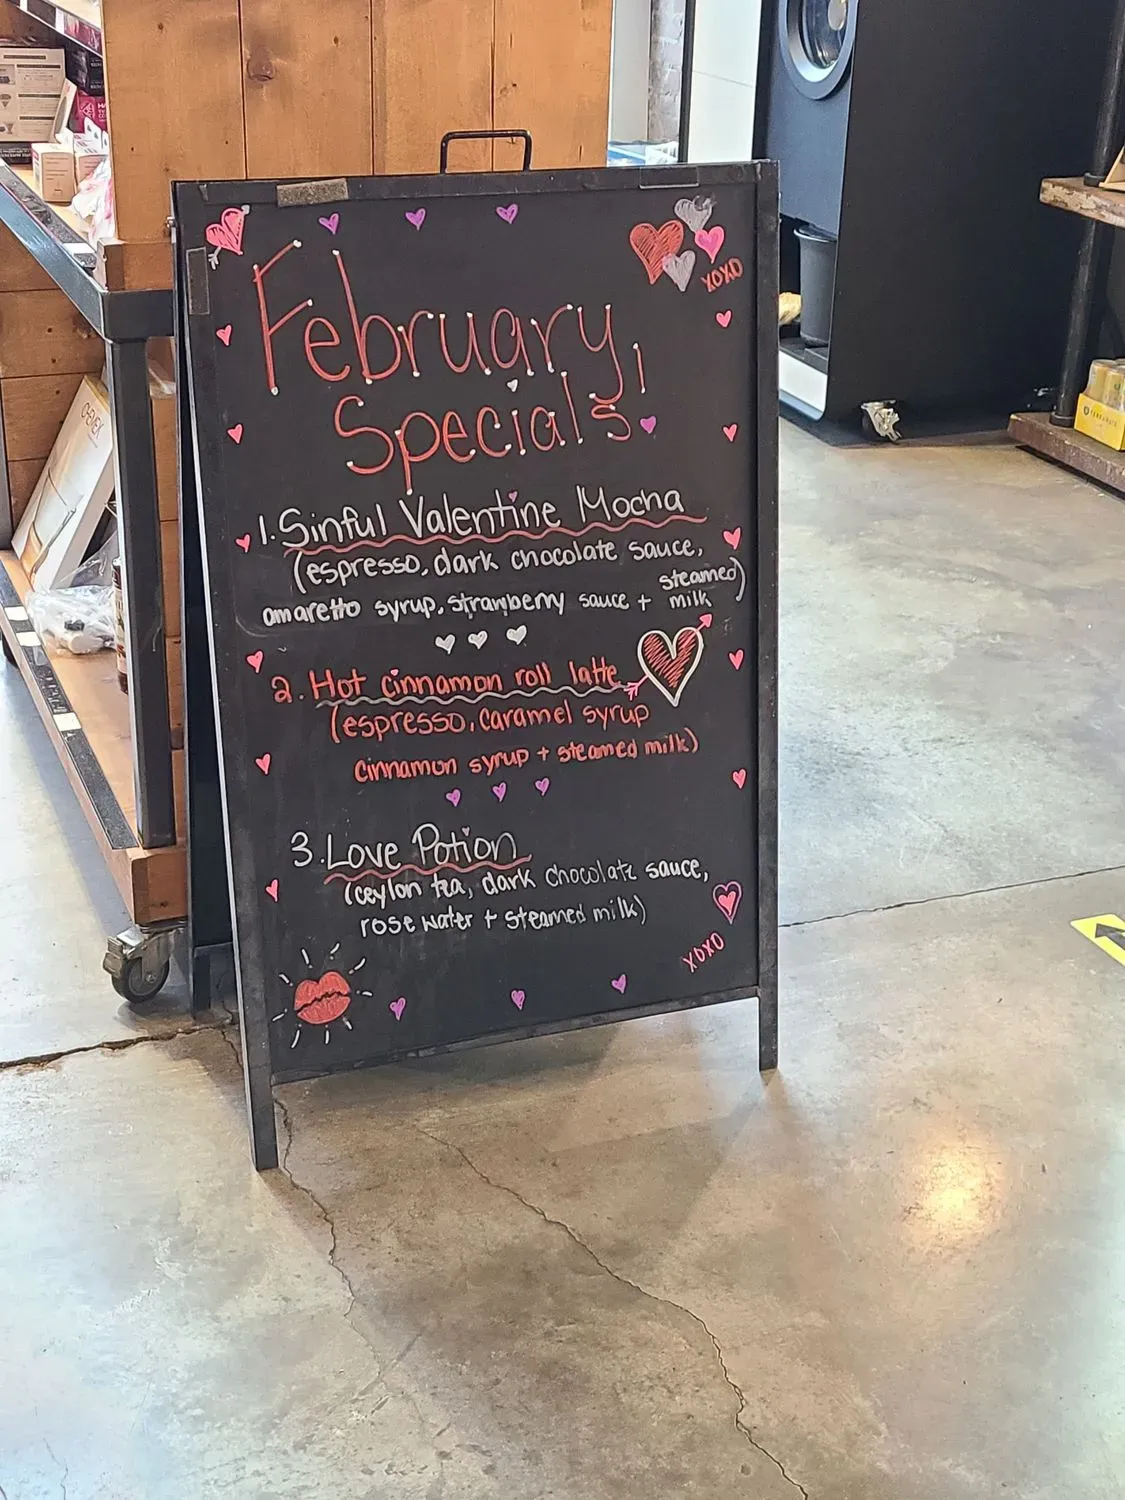 XOXO
February
Specials!
1. Sinful Valentine Mocha
(espresso, dark chocolate sauce,
amaretto syrup, strawberry sauce + steamed milk)
2. Hot cinnamon roll latte
(espresso, caramel syrup
cinnamon syrup + steamed milk)
3. Love Potion
(ceylon tea, dark chocolate sauce,
rose water + steamed milk)
XOXO